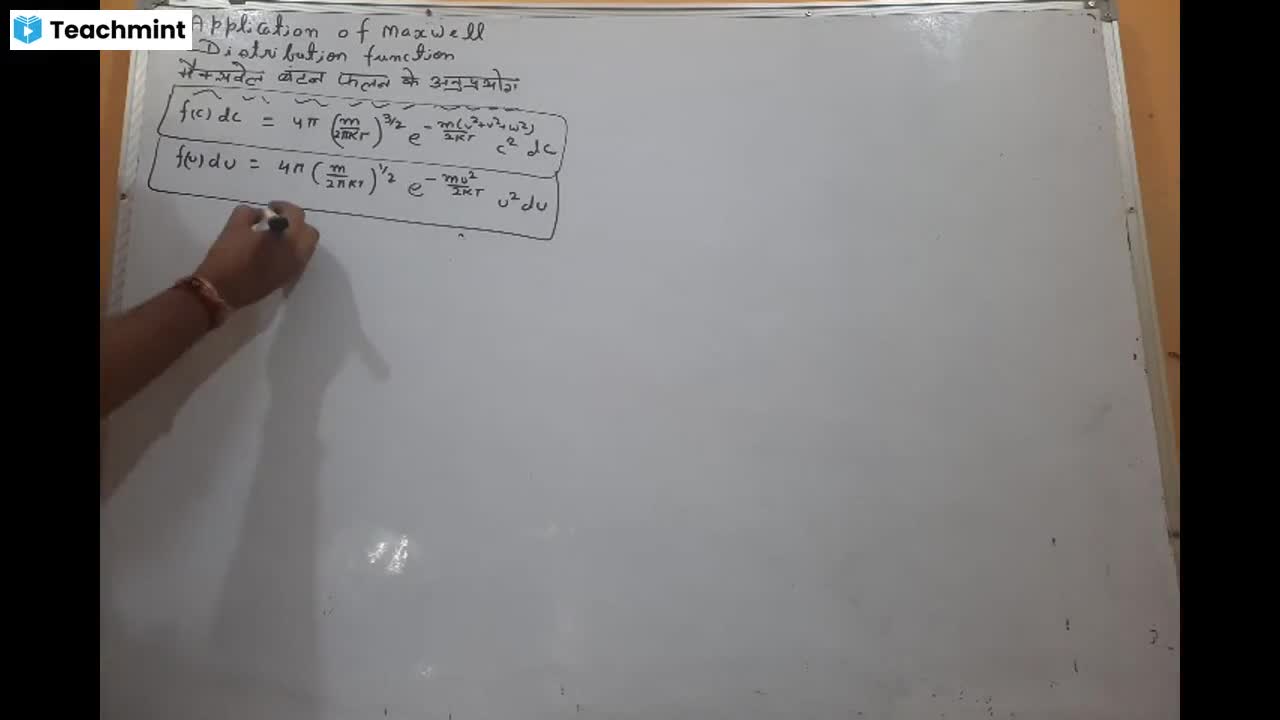 Teachmint
Application of Maxwell
Distribution function
मैक्सवेल बंटन फलन के अनुप्रयोग
f(c) dc = 4π (m/2πKT)^3/2 e^-m(u²+v²+w²)/2KT c² dc
f(u) du = 4π (m/2πKT)^1/2 e^-mu²/2KT u² du